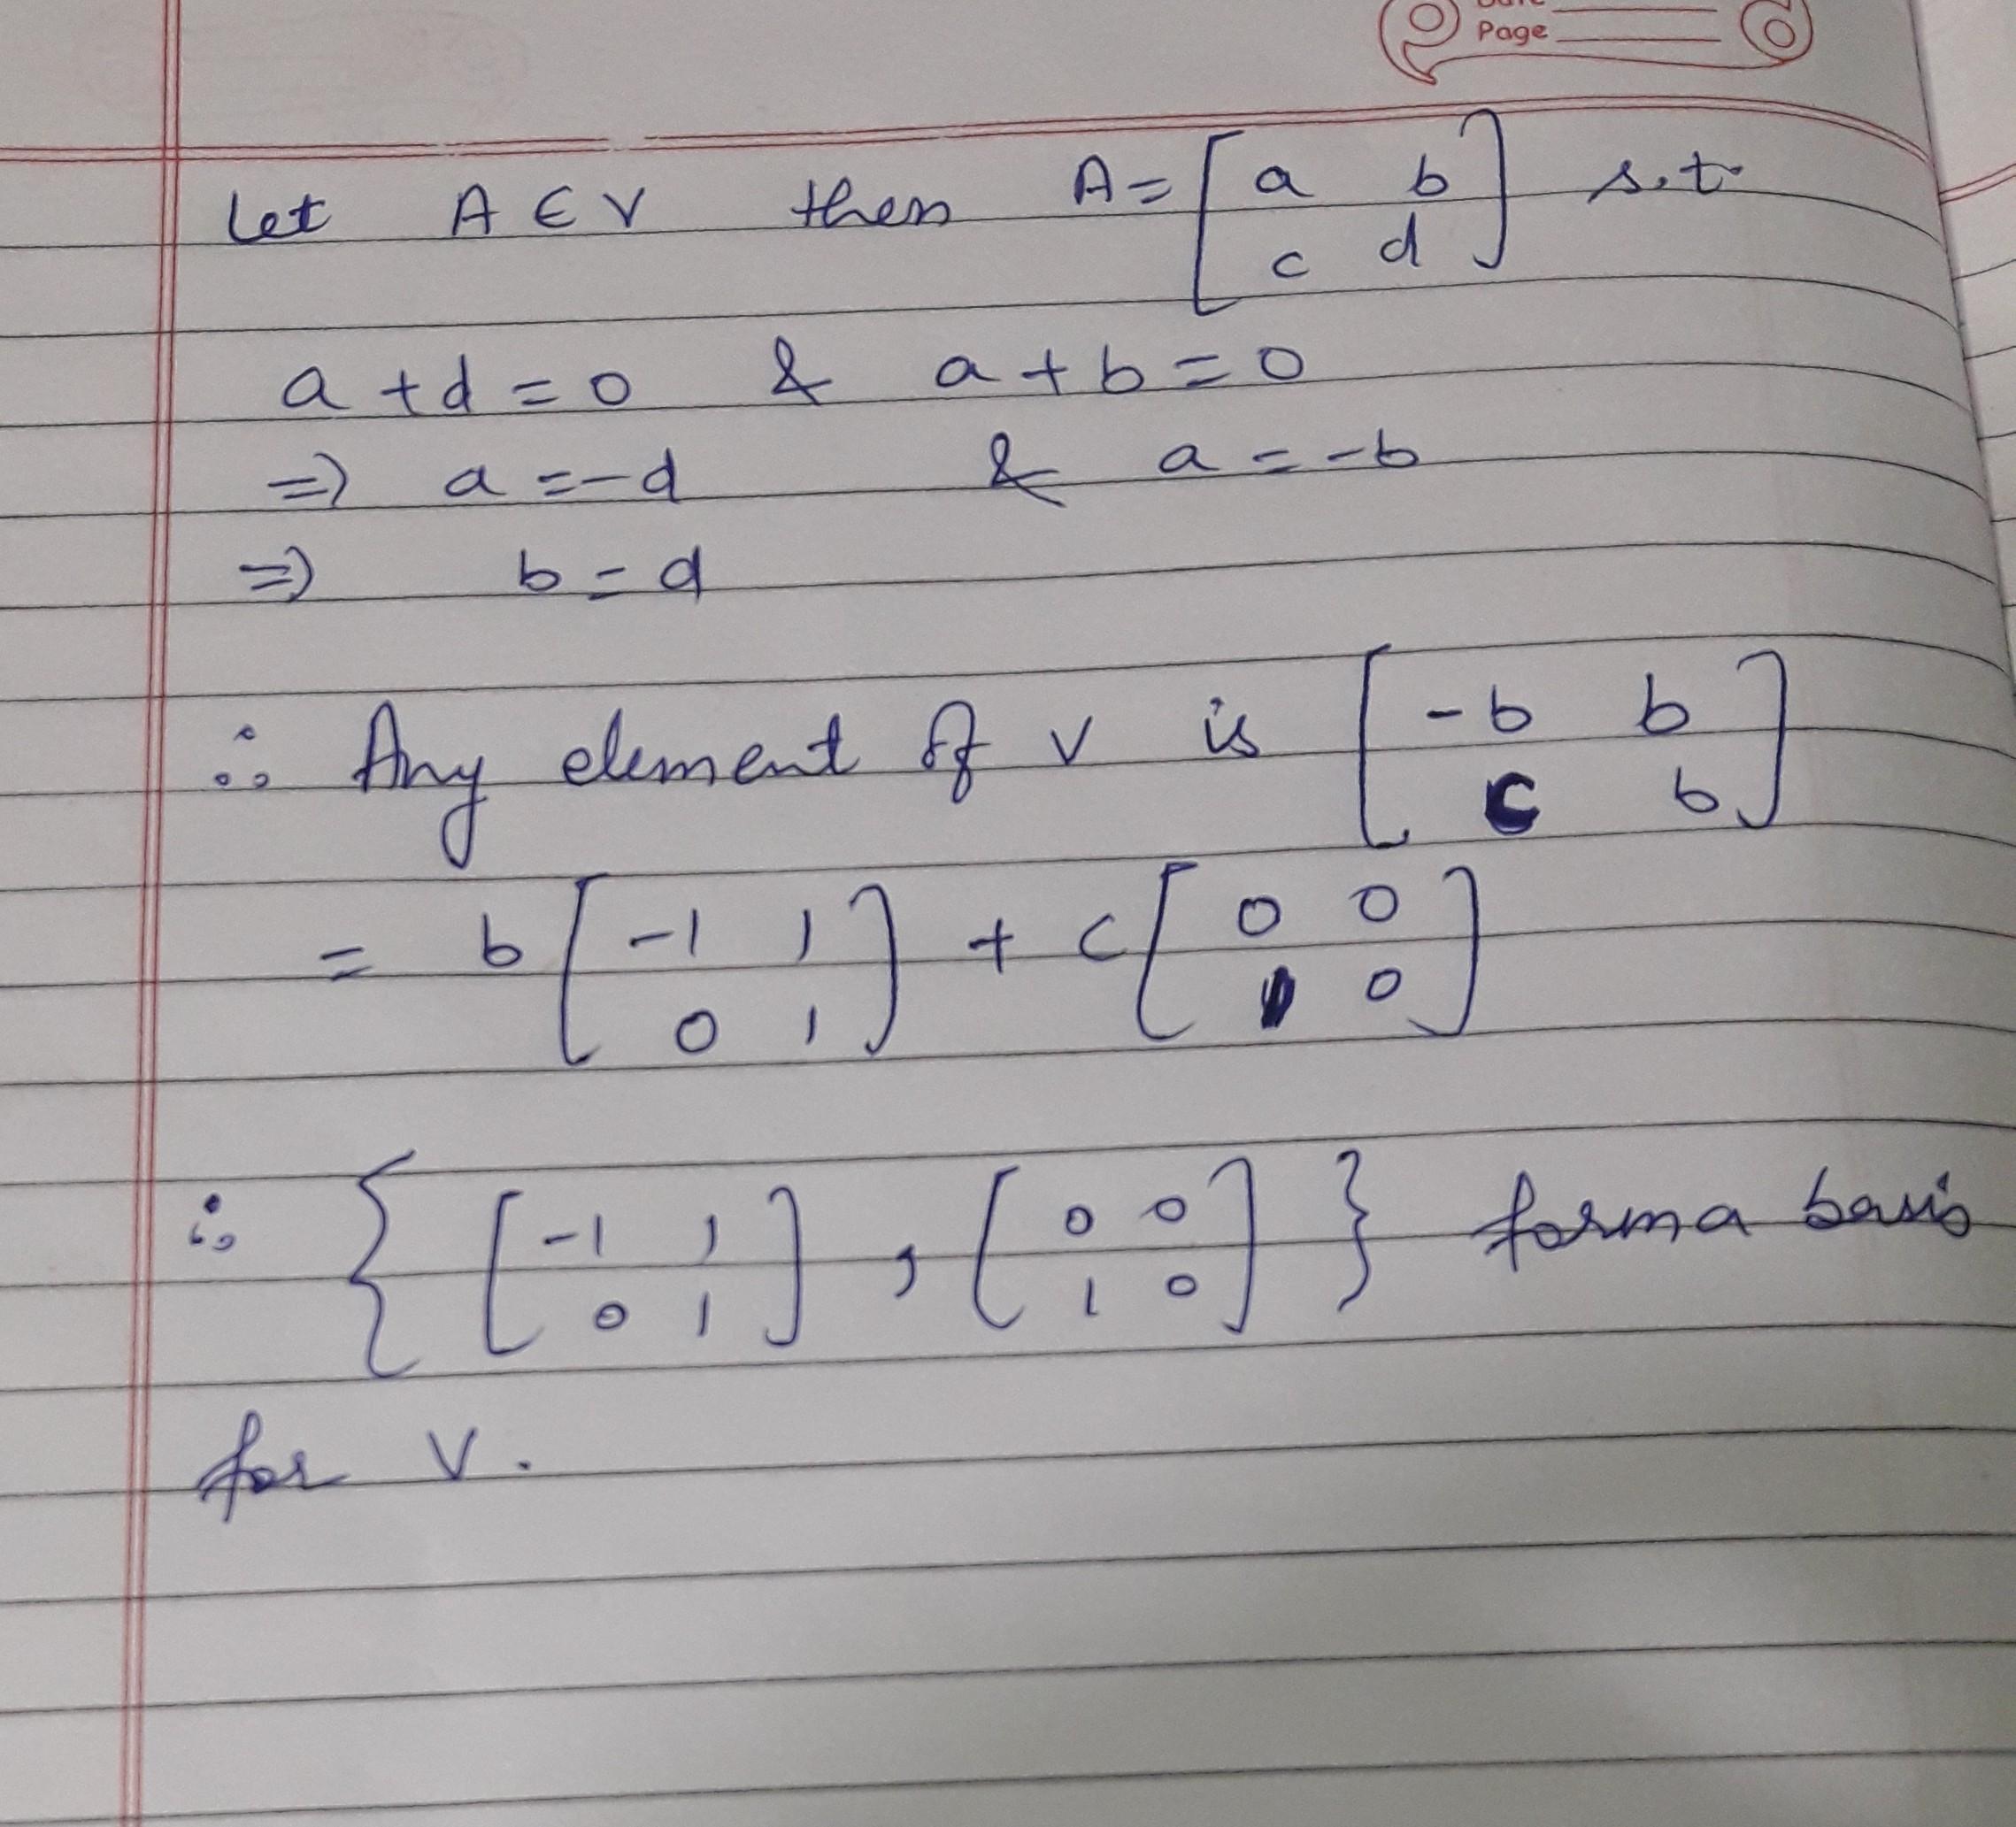 Date
Page
Let A ∈ V then A = [a b; c d] s.t.
a + d = 0 & a + b = 0
⇒ a = -d & a = -b
⇒ b = d
∴ Any element of V is [-b b; c b]
= b [-1 1; 0 1] + c [0 0; 1 0]
∴ { [-1 1; 0 1], [0 0; 1 0] } form a basis
for V.